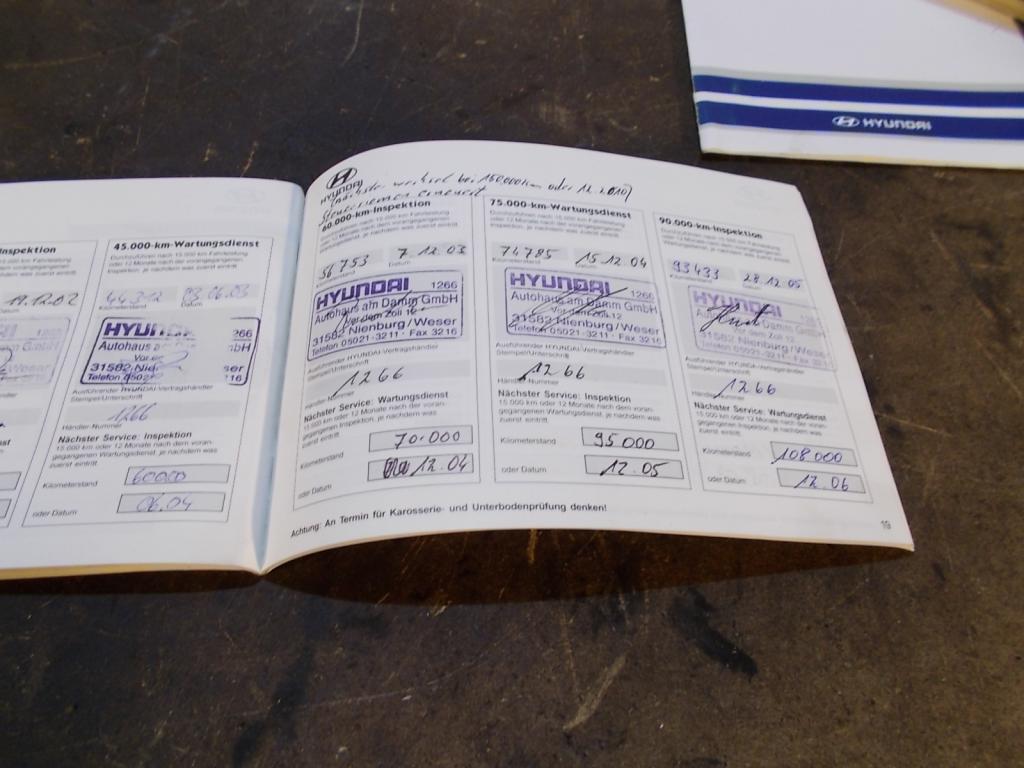 HYUNDAI
nspektion
19.12.02
45.000-km-Wartungsdienst
Durchzuführen nach 15.000 km Fahrleistung
oder 12 Monate nach der vorangegangenen
Inspektion, je nachdem was zuerst eintritt.
44312 03.06.03
Kilometerstand Datum
HYUNDAI 1266
Autohaus am Damm GmbH
31582 Nienburg/Weser
Telefon 05021-3216
Ausführender HYUNDAI-Vertragshändler
Stempel/Unterschrift
1266
Händler-Nummer
Nächster Service: Inspektion
15.000 km oder 12 Monate nach dem voran-
gegangenen Wartungsdienst, je nachdem was
zuerst eintritt.
Kilometerstand 60000
oder Datum 06.04
HYUNDAI
(nächster wechsel bei 150.000km oder 12.2010)
Steuerriemen erneuert
60.000-km-Inspektion
Durchzuführen nach 15.000 km Fahrleistung
oder 12 Monate nach dem vorangegangenen
Wartungsdienst, je nachdem was zuerst eintritt.
56753 7.12.03
Kilometerstand Datum
HYUNDAI 1266
Autohaus am Damm GmbH
Vor dem Zoll 12
31582 Nienburg/Weser
Telefon 05021-3211 · Fax 3216
Ausführender HYUNDAI-Vertragshändler
Stempel/Unterschrift
1266
Händler-Nummer
Nächster Service: Wartungsdienst
15.000 km oder 12 Monate nach der voran-
gegangenen Inspektion, je nachdem was
zuerst eintritt.
Kilometerstand 70.000
oder Datum 12.04
75.000-km-Wartungsdienst
Durchzuführen nach 15.000 km Fahrleistung
oder 12 Monate nach der vorangegangenen
Inspektion, je nachdem was zuerst eintritt.
74785 15.12.04
Kilometerstand Datum
HYUNDAI 1266
Autohaus am Damm GmbH
Vor dem Zoll 12
31582 Nienburg/Weser
Telefon 05021-3211 · Fax 3216
Ausführender HYUNDAI-Vertragshändler
Stempel/Unterschrift
1266
Händler-Nummer
Nächster Service: Inspektion
15.000 km oder 12 Monate nach dem voran-
gegangenen Wartungsdienst, je nachdem was
zuerst eintritt.
Kilometerstand 95000
oder Datum 12.05
90.000-km-Inspektion
Durchzuführen nach 15.000 km Fahrleistung
oder 12 Monate nach dem vorangegangenen
Wartungsdienst, je nachdem was zuerst eintritt.
93433 28.12.05
Kilometerstand Datum
HYUNDAI 1266
Autohaus am Damm GmbH
Vor dem Zoll 12
31582 Nienburg/Weser
Telefon 05021-3211 · Fax 3216
Ausführender HYUNDAI-Vertragshändler
Stempel/Unterschrift
1266
Händler-Nummer
Nächster Service: Wartungsdienst
15.000 km oder 12 Monate nach der voran-
gegangenen Inspektion, je nachdem was
zuerst eintritt.
Kilometerstand 108000
oder Datum 12.06
Achtung: An Termin für Karosserie- und Unterbodenprüfung denken!
19